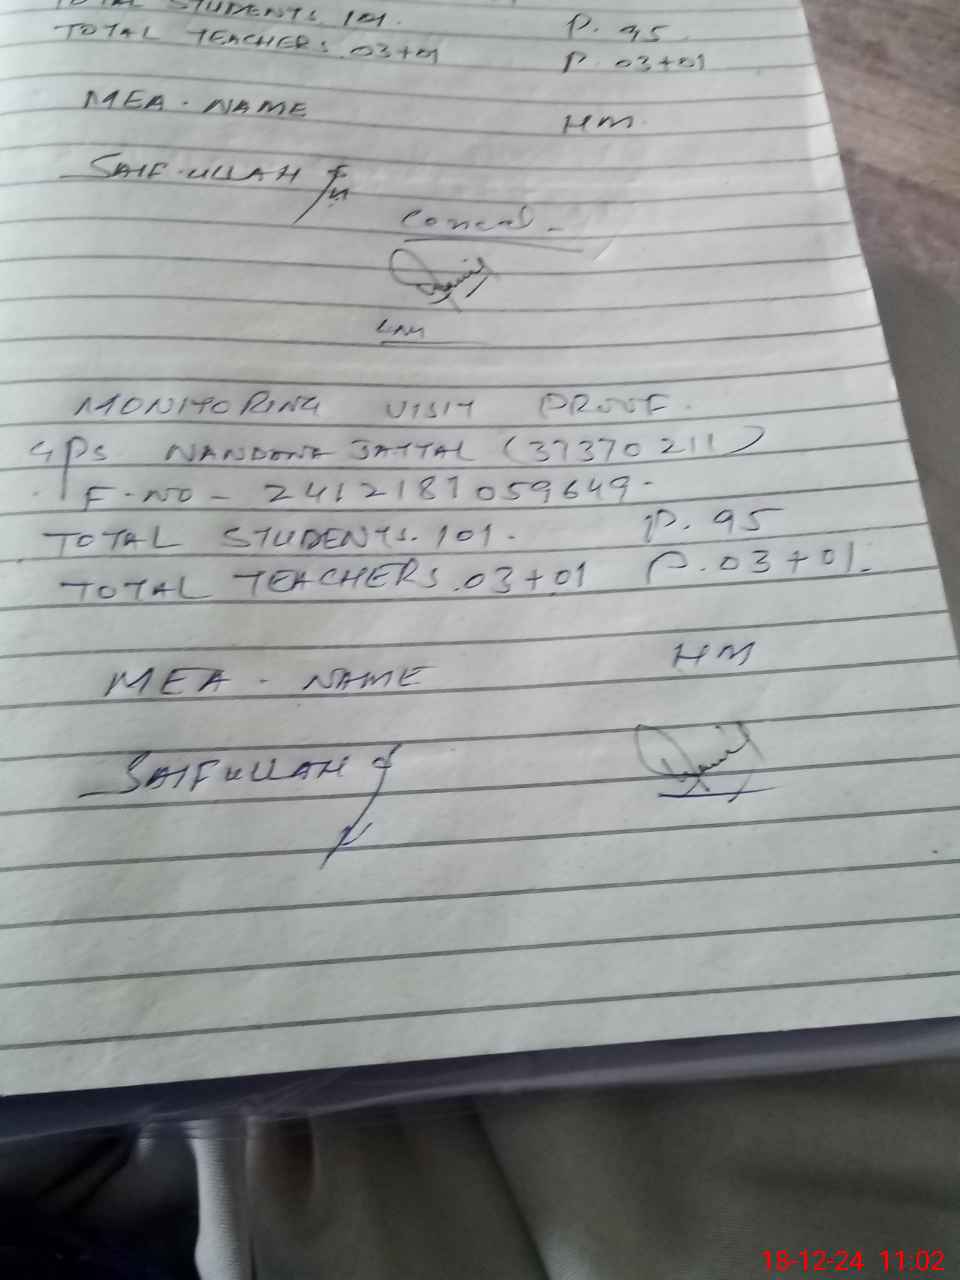 TOTAL STUDENTS 101. P. 95
TOTAL TEACHERS. 03+01 P. 03+01
MEA. NAME HM.
SAIFULLAH
MONITORING VISIT PROOF.
GPS NANDONA JATTAL (37370211)
F.NO - 2412187059649-
TOTAL STUDENTS. 101. P. 95
TOTAL TEACHERS. 03+01 P. 03+01.
MEA. NAME HM
SAIFULLAH
18-12-24 11:02